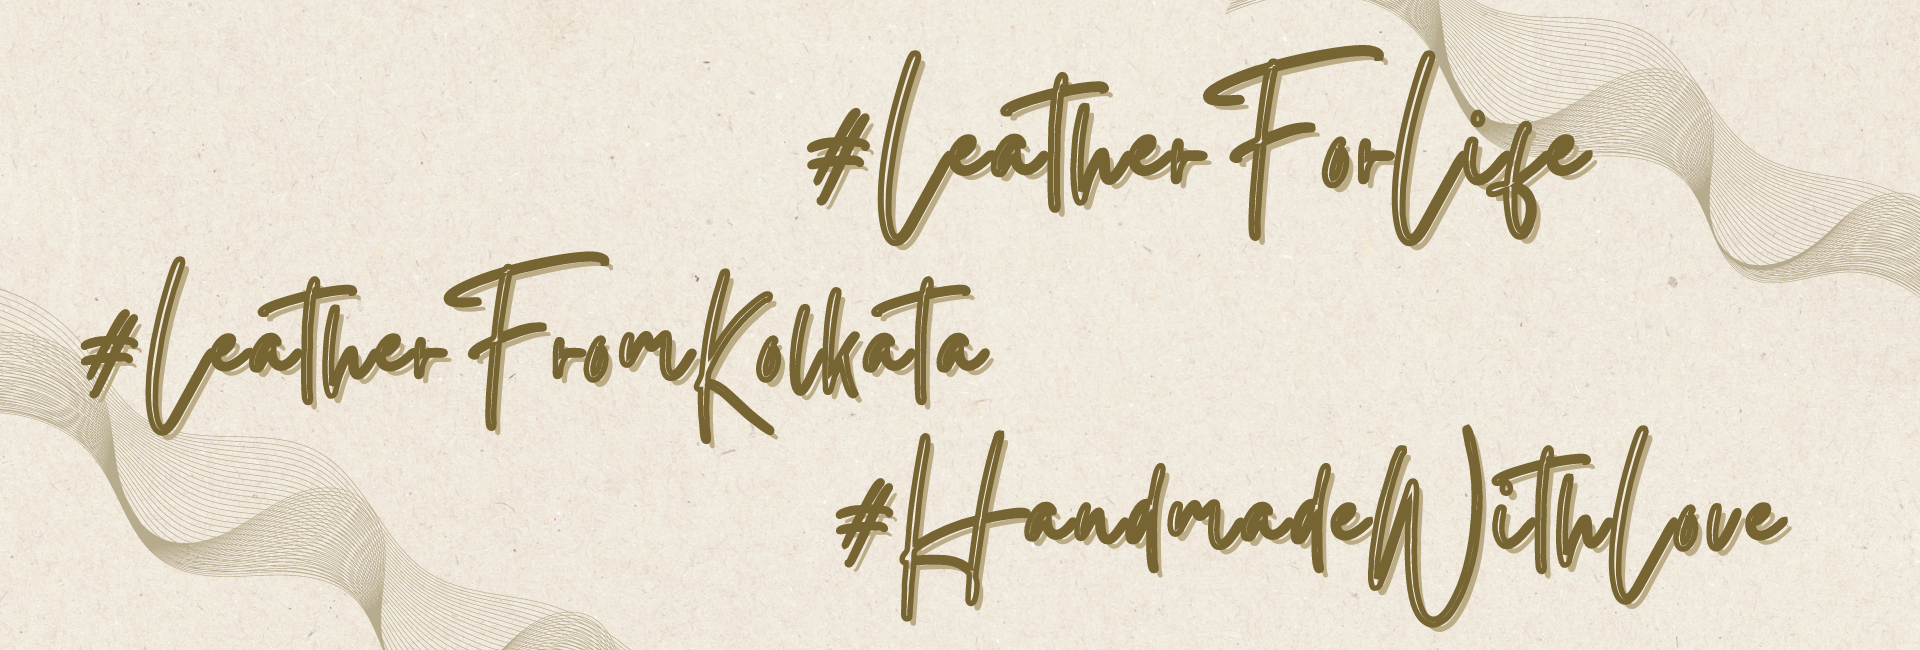 #LeatherForLife
#LeatherFromKolkata
#HandmadeWithLove